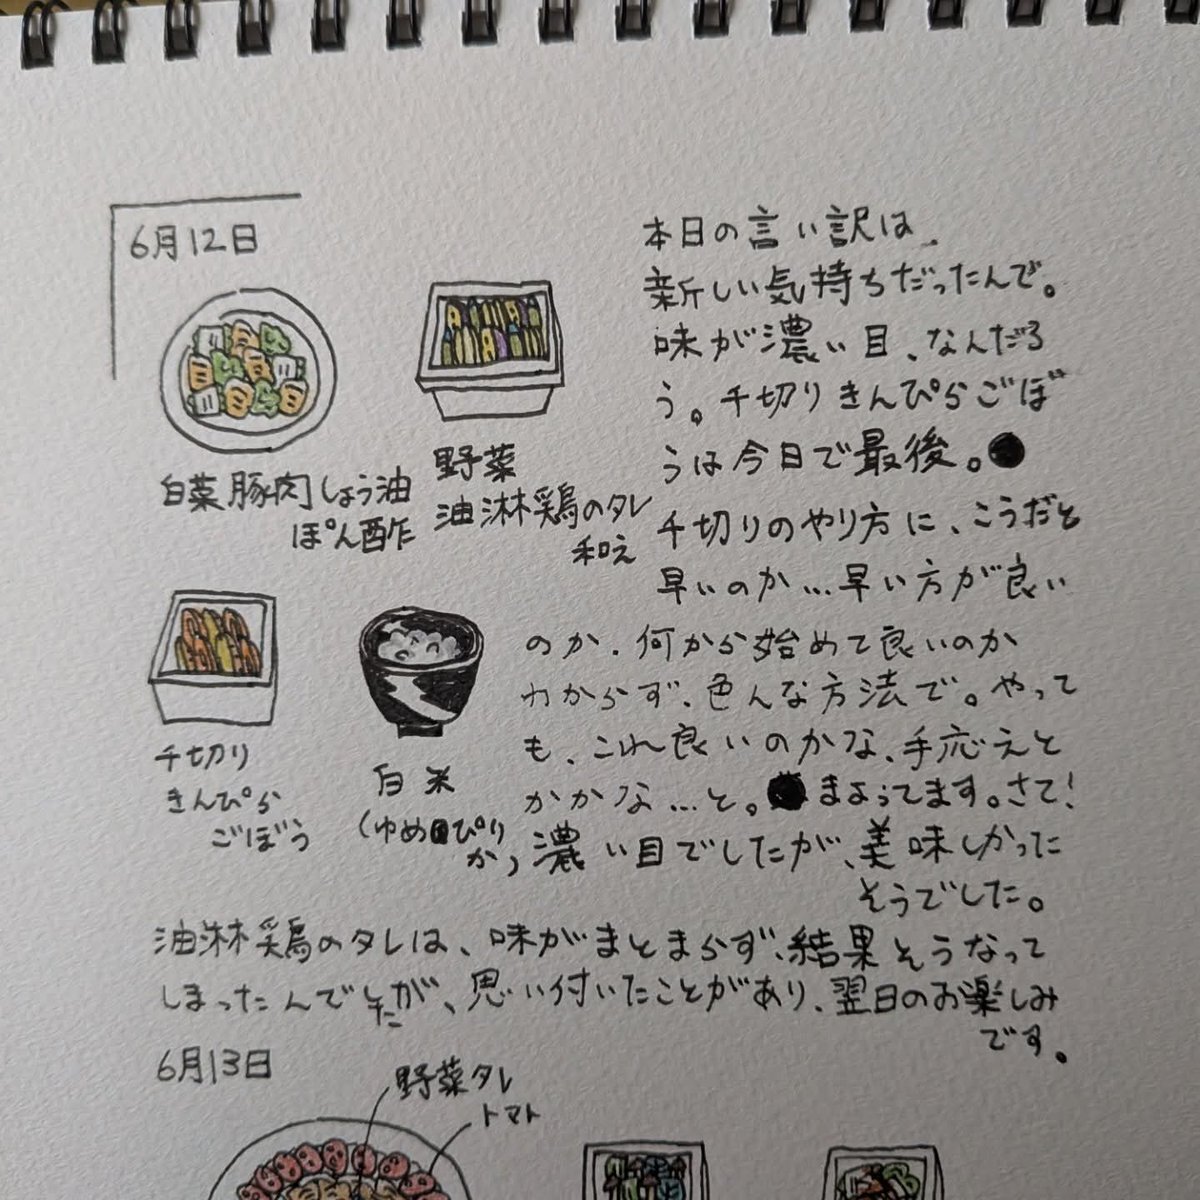 6月12日
白菜豚肉しょう油
ぽん酢
野菜
油淋鶏のタレ
和え
千切り
きんぴら
ごぼう
白米
(ゆめぴり
か)
本日の言い訳は、
新しい気持ちだったんで。
味が濃い目、なんだろ
う。千切りきんぴらごぼ
うは今日で最後。
千切りのやり方に、こうだと
早いのか…早い方が良い
のか、何から始めて良いのか
わからず、色んな方法で。やって
も、これ良いのかな、手応えと
かかな…と。まよってます。さて!
濃い目でしたが、美味しかった
そうでした。
油淋鶏のタレは、味がまとまらず、結果そうなって
しまったんでしたが、思い付いたことがあり、翌日のお楽しみ
です。
6月13日
野菜タレ
トマト